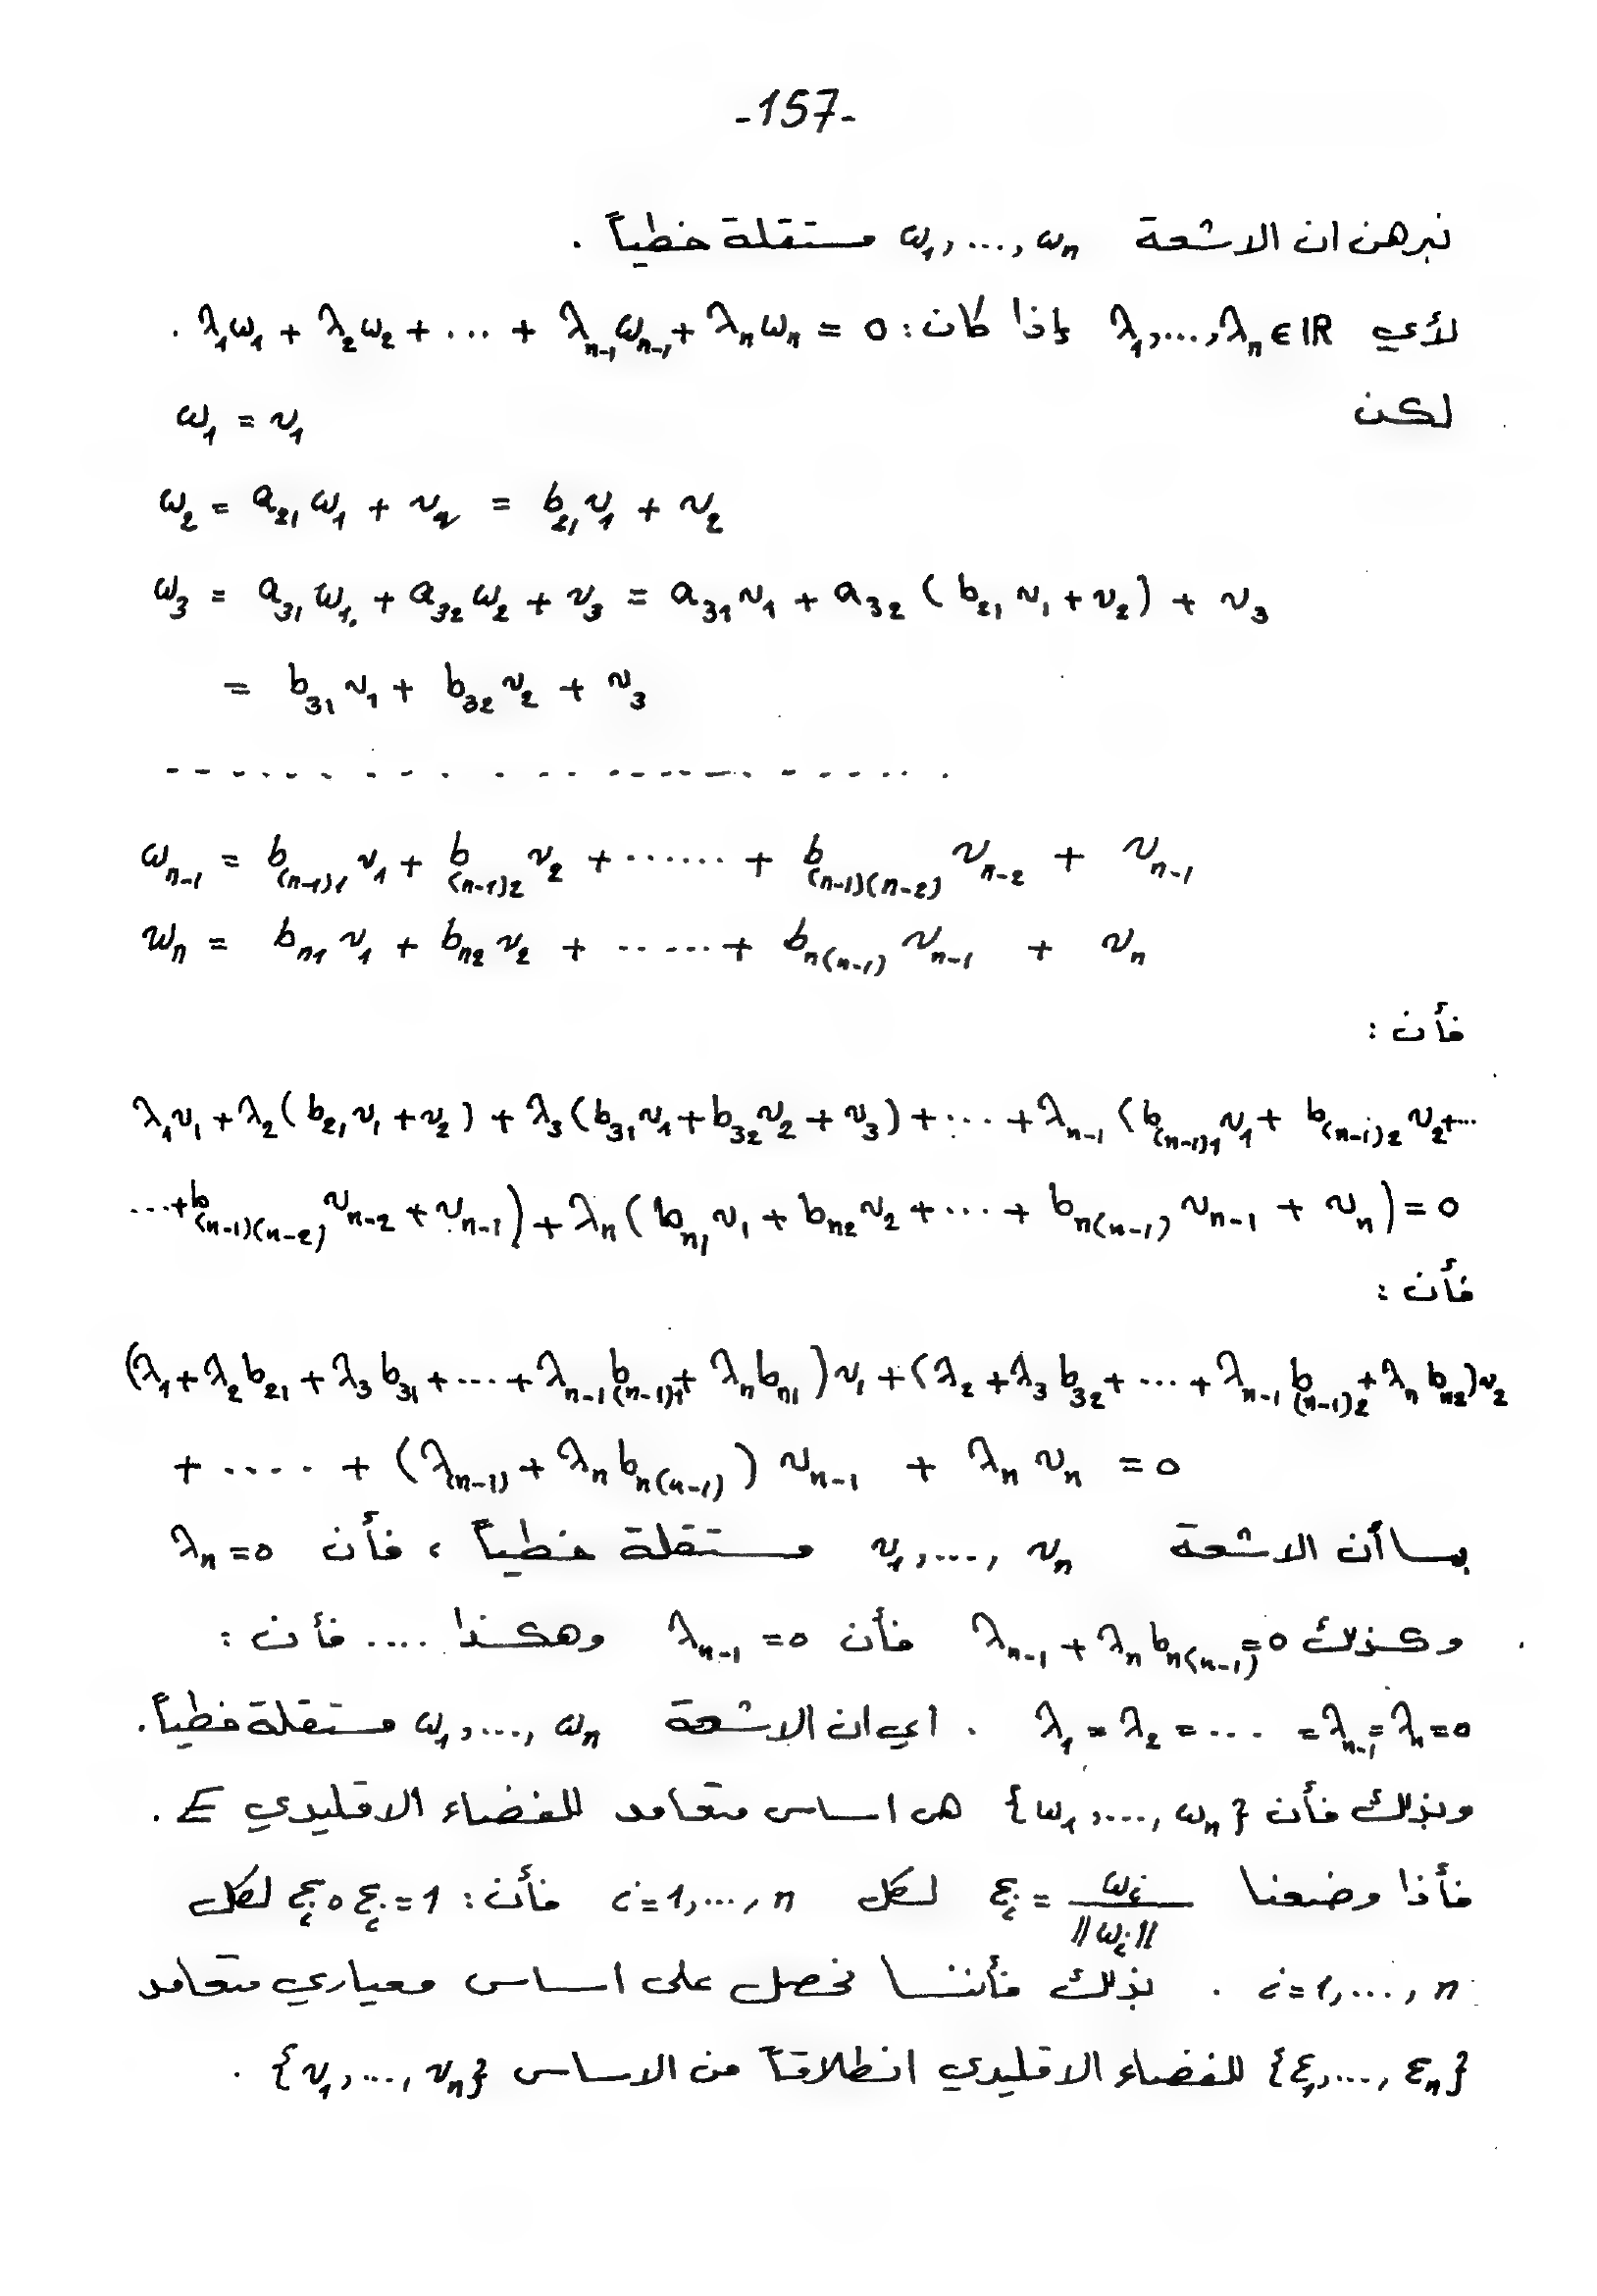 -157-
نبرهن ان الاشعة ω₁,...,ωₙ مستقلة خطياً .
لأي λ₁,...,λₙ ∈ IR إذا كان : λ₁ω₁ + λ₂ω₂ + ... + λₙ₋₁ωₙ₋₁ + λₙωₙ = 0 .
لكن ω₁ = v₁
ω₂ = a₂₁ω₁ + v₂ = b₂₁v₁ + v₂
ω₃ = a₃₁ω₁ + a₃₂ω₂ + v₃ = a₃₁v₁ + a₃₂ ( b₂₁v₁ + v₂ ) + v₃
= b₃₁v₁ + b₃₂v₂ + v₃
- - - - - - - - - - - - - - - - - - - -
ωₙ₋₁ = b₍ₙ₋₁₎₁ v₁ + b₍ₙ₋₁₎₂ v₂ + ...... + b₍ₙ₋₁₎₍ₙ₋₂₎ vₙ₋₂ + vₙ₋₁
ωₙ = bₙ₁v₁ + bₙ₂v₂ + ...... + bₙ₍ₙ₋₁₎ vₙ₋₁ + vₙ
فأن :
λ₁v₁ + λ₂( b₂₁v₁ + v₂ ) + λ₃( b₃₁v₁ + b₃₂v₂ + v₃ ) + ... + λₙ₋₁ ( b₍ₙ₋₁₎₁v₁ + b₍ₙ₋₁₎₂ v₂ + ...
... + b₍ₙ₋₁₎₍ₙ₋₂₎ vₙ₋₂ + vₙ₋₁ ) + λₙ ( bₙ₁v₁ + bₙ₂v₂ + ... + bₙ₍ₙ₋₁₎ vₙ₋₁ + vₙ ) = 0
فأن :
(λ₁ + λ₂b₂₁ + λ₃b₃₁ + ... + λₙ₋₁b₍ₙ₋₁₎₁ + λₙbₙ₁ ) v₁ + ( λ₂ + λ₃b₃₂ + ... + λₙ₋₁b₍ₙ₋₁₎₂ + λₙbₙ₂ ) v₂
+ .... + ( λ₍ₙ₋₁₎ + λₙbₙ₍ₙ₋₁₎ ) vₙ₋₁ + λₙvₙ = 0
بما أن الاشعة v₁,..., vₙ مستقلة خطياً ، فأن λₙ = 0
وكذلك λₙ₋₁ + λₙbₙ₍ₙ₋₁₎ = 0 فأن λₙ₋₁ = 0 وهكذا .... فأن :
λ₁ = λ₂ = ... = λₙ₋₁ = λₙ = 0 . اي ان الاشعة ω₁,..., ωₙ مستقلة خطياً .
وبذلك فأن {ω₁,..., ωₙ} هي اساس متعامد للفضاء الاقليدي E .
فأذا وضعنا εᵢ = ωᵢ / ||ωᵢ|| لكل i = 1,..., n فأن : εᵢ ∘ εᵢ = 1 لكل
i = 1,..., n . بذلك فأننا نحصل على اساس معياري متعامد
{ε₁,..., εₙ} للفضاء الاقليدي انطلاقاً من الاساس {v₁,..., vₙ} .